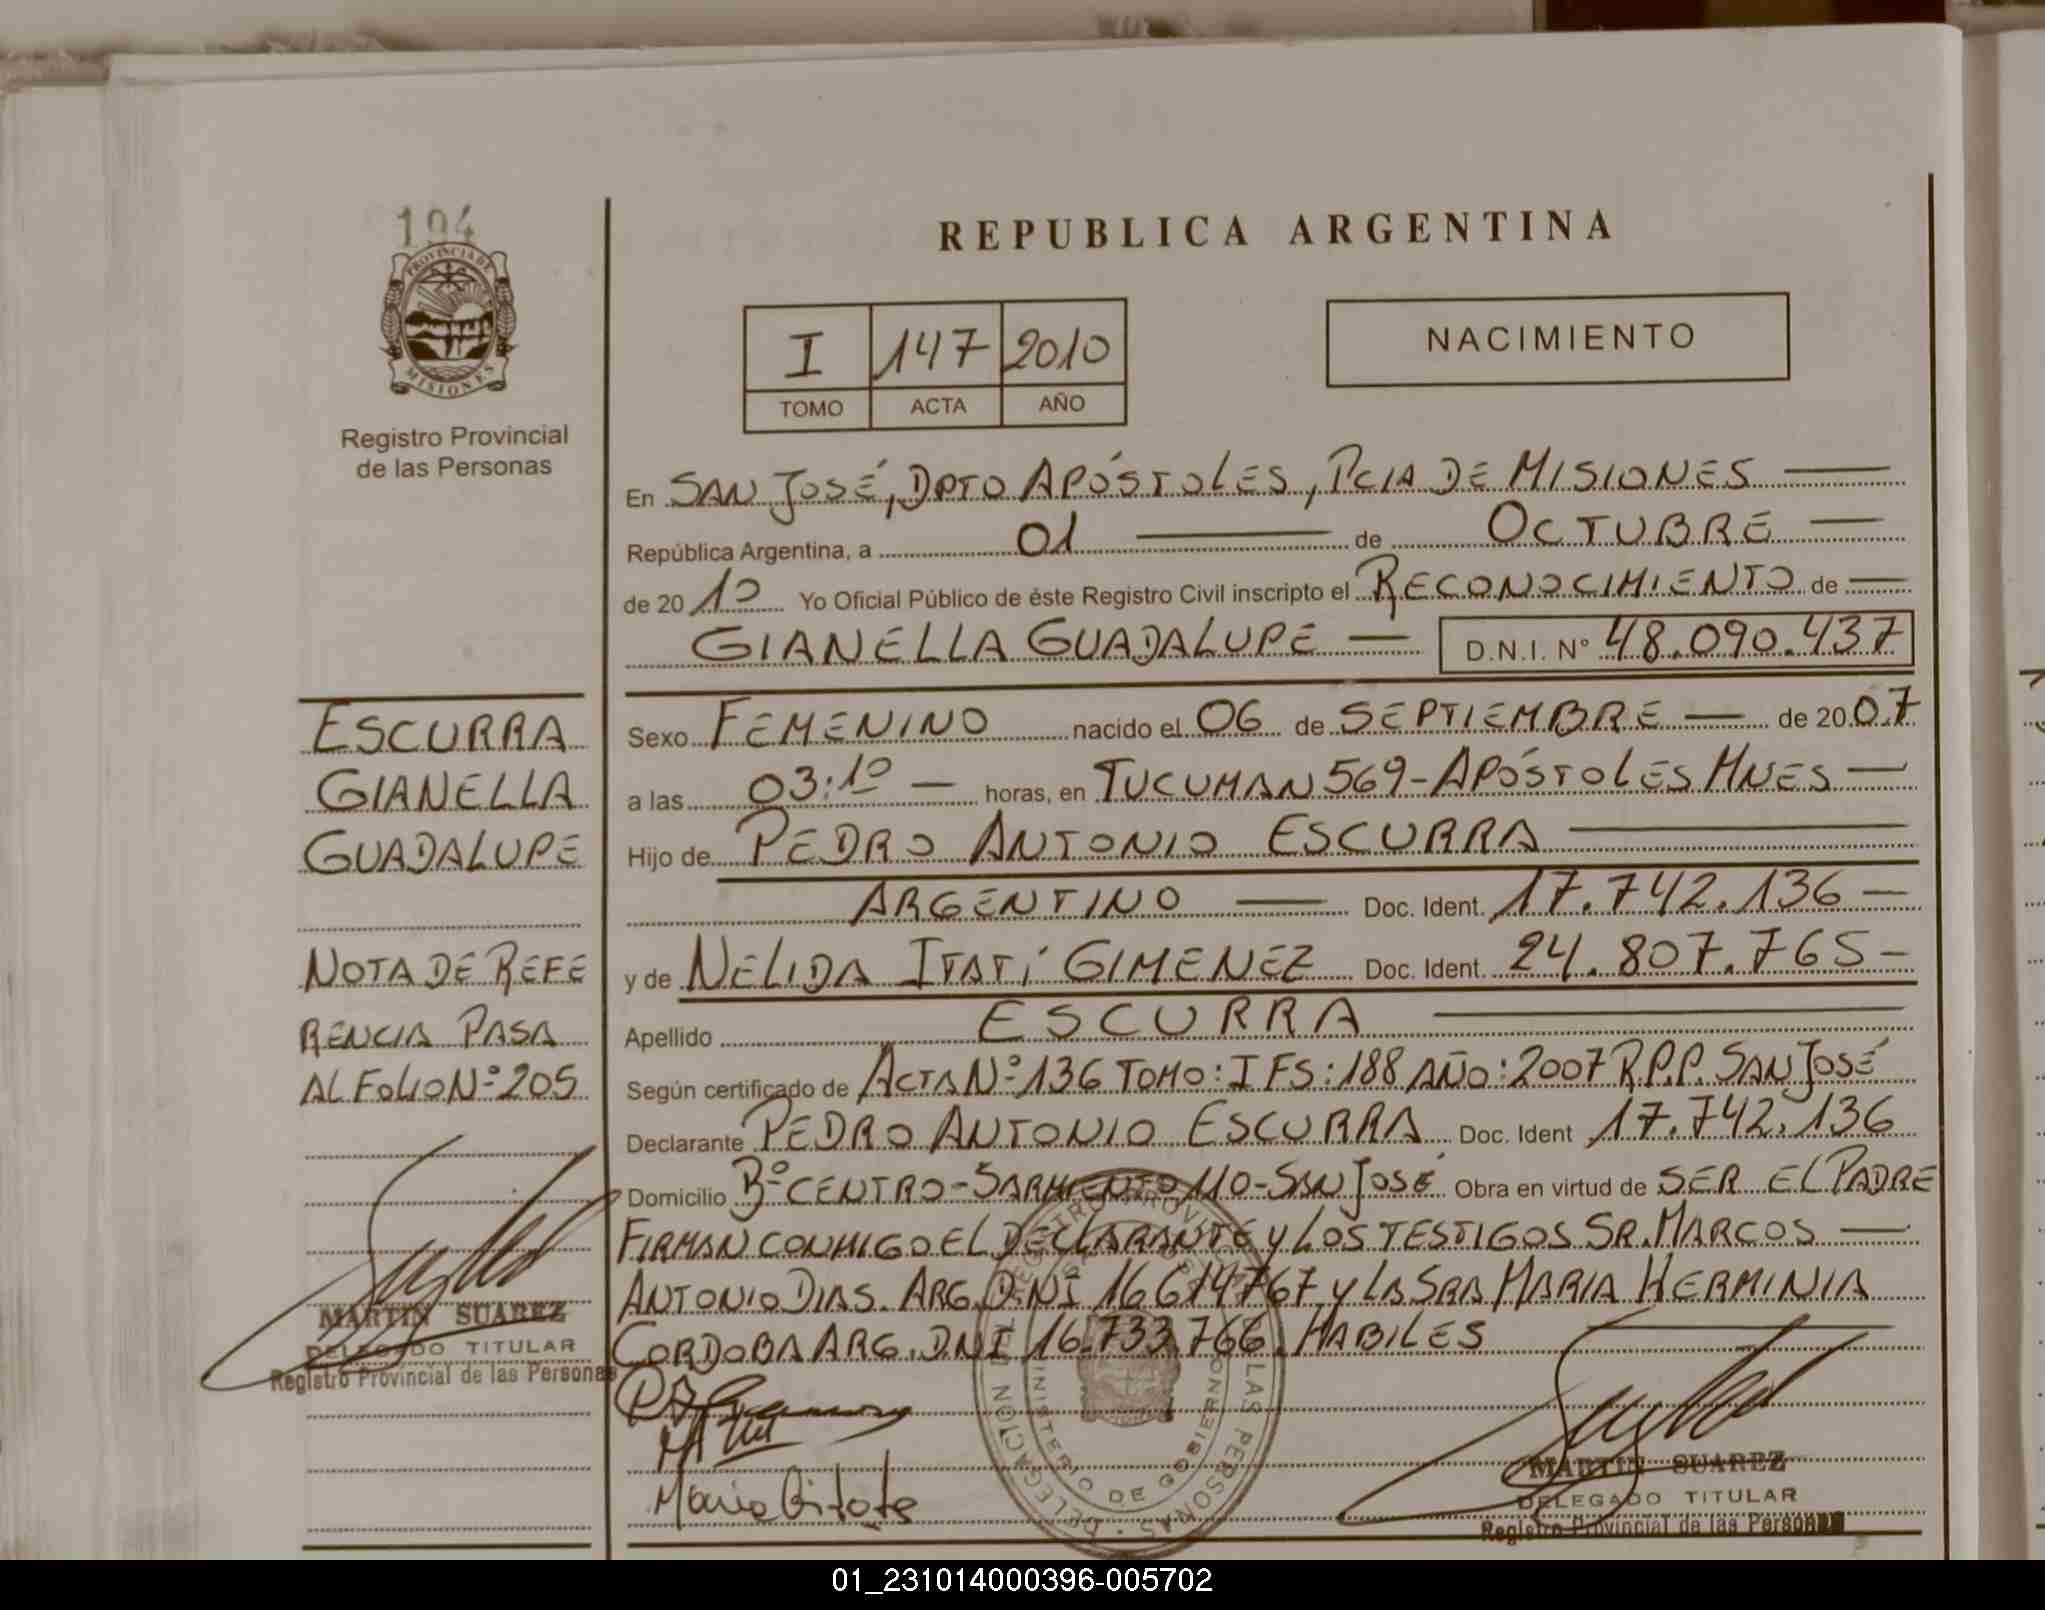 194
PROVINCIA DE
MISIONES
Registro Provincial
de las Personas
ESCURRA
GIANELLA
GUADALUPE
NOTA DE REFE
RENCIA PASA
AL FOLIO Nº 205
MARTIN SUAREZ
DELEGADO TITULAR
Registro Provincial de las Personas
REPUBLICA ARGENTINA
I 147 2010
TOMO ACTA AÑO
NACIMIENTO
En SAN JOSÉ, DPTO APÓSTOLES, PCIA DE MISIONES
República Argentina, a 01 de OCTUBRE
de 2010 Yo Oficial Público de éste Registro Civil inscripto el RECONOCIMIENTO de
GIANELLA GUADALUPE D.N.I. Nº 48.090.437
Sexo FEMENINO nacido el 06 de SEPTIEMBRE de 2007
a las 03:10 horas, en TUCUMAN 569-APÓSTOLES MNES
Hijo de PEDRO ANTONIO ESCURRA
ARGENTINO Doc. Ident. 17.742.136
y de NELIDA ITATÍ GIMENEZ Doc. Ident. 24.807.765
Apellido ESCURRA
Según certificado de ACTA Nº 136 TOMO: I FS: 188 AÑO: 2007 R.P.P. SAN JOSÉ
Declarante PEDRO ANTONIO ESCURRA Doc. Ident 17.742.136
Domicilio Bº CENTRO-SARMIENTO 110-SAN JOSÉ Obra en virtud de SER EL PADRE
FIRMAN CONMIGO EL DECLARANTE Y LOS TESTIGOS SR. MARCOS
ANTONIO DIAS. ARG. D.NI 16614767 Y LA SRA MARIA HERMINIA
CORDOBA ARG. DNI 16.733.766. HABILES
MARTIN SUAREZ
DELEGADO TITULAR
Registro Provincial de las Personas
01_231014000396-005702